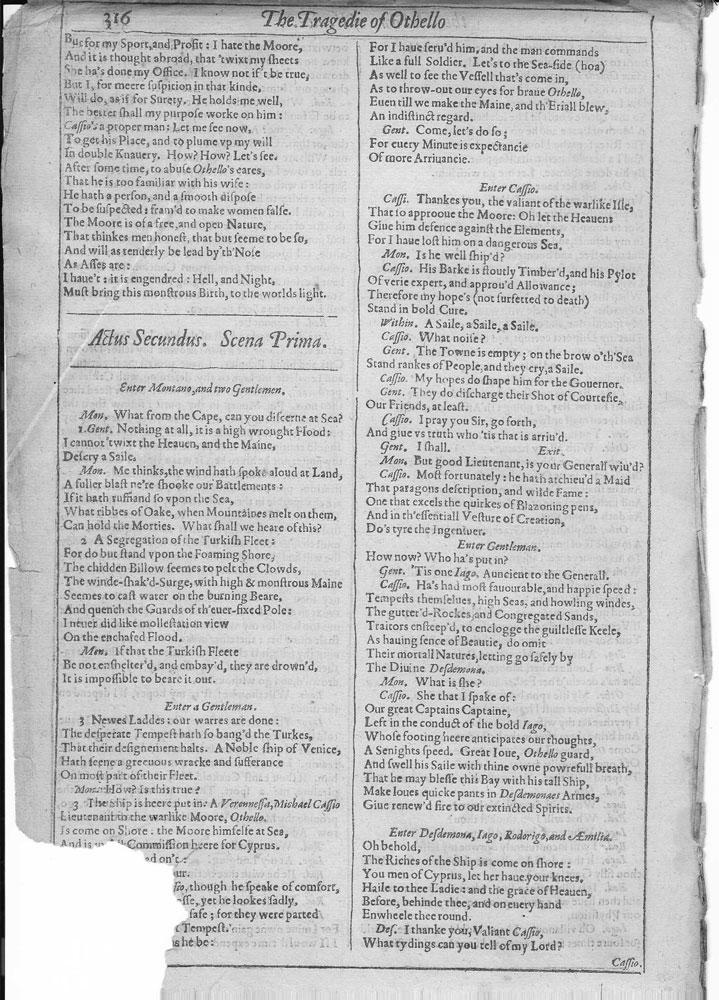 316
The Tragedie of Othello
But for my Sport, and Profit: I hate the Moore,
And it is thought abroad, that 'twixt my ſheets
She ha's done my Office. I know not if't be true,
But I, for meere ſuſpition in that kinde,
Will do, as if for Surety. He holds me well,
The better ſhall my purpoſe worke on him:
Caſſio's a proper man: Let me ſee now,
To get his Place, and to plume vp my will
In double Knauery. How? How? Let's ſee.
After ſome time, to abuſe Othello's eares,
That he is too familiar with his wife:
He hath a perſon, and a ſmooth diſpoſe
To be ſuſpected: fram'd to make women falſe.
The Moore is of a free, and open Nature,
That thinkes men honeſt, that but ſeeme to be ſo,
And will as tenderly be lead by'th'Noſe
As Aſſes are:
I haue't: it is engendred: Hell, and Night,
Muſt bring this monſtrous Birth, to the worlds light.
Actus Secundus. Scena Prima.
Enter Montano, and two Gentlemen.
Mon. What from the Cape, can you diſcerne at Sea?
1.Gent. Nothing at all, it is a high wrought Flood:
I cannot 'twixt the Heauen, and the Maine,
Deſcry a Saile.
Mon. Me thinks, the wind hath ſpoke aloud at Land,
A fuller blaſt ne're ſhooke our Battlements:
If it hath ruffiand ſo vpon the Sea,
What ribbes of Oake, when Mountaines melt on them,
Can hold the Morties. What ſhall we heare of this?
2 A Segregation of the Turkiſh Fleet:
For do but ſtand vpon the Foaming Shore,
The chidden Billow ſeemes to pelt the Clowds,
The winde-ſhak'd-Surge, with high & monſtrous Maine
Seemes to caſt water on the burning Beare,
And quench the Guards of th'euer-fixed Pole:
I neuer did like molleſtation view
On the enchafed Flood.
Mon. If that the Turkiſh Fleete
Be not enſhelter'd, and embay'd, they are drown'd,
It is impoſſible to beare it out.
Enter a Gentleman.
3 Newes Laddes: our warres are done:
The deſperate Tempeſt hath ſo bang'd the Turkes,
That their deſignement halts. A Noble ſhip of Venice,
Hath ſeene a greeuous wracke and ſufferance
On moſt part of their Fleet.
Mon. How? Is this true?
3 The ſhip is heere put in: A Verenneſſa, Michael Caſſio
Lieutenant to the warlike Moore, Othello,
Is come on Shore: the Moore himſelfe at Sea,
And is in full Commiſſion heere for Cyprus.
on't:
ur.
ſo, though he ſpeake of comfort,
ſſe, yet he lookes ſadly,
ſafe; for they were parted
Tempeſt.
s he be:
For I haue ſeru'd him, and the man commands
Like a full Soldier. Let's to the Sea-ſide (hoa)
As well to ſee the Veſſell that's come in,
As to throw-out our eyes for braue Othello,
Euen till we make the Maine, and th'Eriall blew,
An indiſtinct regard.
Gent. Come, let's do ſo;
For euery Minute is expectancie
Of more Arriuancie.
Enter Caſſio.
Caſſi. Thankes you, the valiant of the warlike Iſle,
That ſo approoue the Moore: Oh let the Heauens
Giue him defence againſt the Elements,
For I haue loſt him on a dangerous Sea.
Mon. Is he well ſhip'd?
Caſſio. His Barke is ſtoutly Timber'd, and his Pylot
Of verie expert, and approu'd Allowance;
Therefore my hope's (not ſurfetted to death)
Stand in bold Cure.
Within. A Saile, a Saile, a Saile.
Caſſio. What noiſe?
Gent. The Towne is empty; on the brow o'th'Sea
Stand rankes of People, and they cry, a Saile.
Caſſio. My hopes do ſhape him for the Gouernor.
Gent. They do diſcharge their Shot of Courteſie,
Our Friends, at leaſt.
Caſſio. I pray you Sir, go forth,
And giue vs truth who 'tis that is arriu'd.
Gent. I ſhall. Exit.
Mon. But good Lieutenant, is your Generall wiu'd?
Caſſio. Moſt fortunately: he hath atchieu'd a Maid
That paragons deſcription, and wilde Fame:
One that excels the quirkes of Blazoning pens,
And in th'eſſentiall Veſture of Creation,
Do's tyre the Ingeniuer.
Enter Gentleman.
How now? Who ha's put in?
Gent. 'Tis one Iago, Auncient to the Generall.
Caſſio. Ha's had moſt fauourable, and happie ſpeed:
Tempeſts themſelues, high Seas, and howling windes,
The gutter'd-Rockes, and Congregated Sands,
Traitors enſteep'd, to enclogge the guiltleſſe Keele,
As hauing ſence of Beautie, do omit
Their mortall Natures, letting go ſafely by
The Diuine Deſdemona.
Mon. What is ſhe?
Caſſio. She that I ſpake of:
Our great Captains Captaine,
Left in the conduct of the bold Iago,
Whoſe footing heere anticipates our thoughts,
A Senights ſpeed. Great Ioue, Othello guard,
And ſwell his Saile with thine owne powrefull breath,
That he may bleſſe this Bay with his tall Ship,
Make loues quicke pants in Deſdemonaes Armes,
Giue renew'd fire to our extincted Spirits.
Enter Deſdemona, Iago, Rodorigo, and Æmilia.
Oh behold,
The Riches of the Ship is come on ſhore:
You men of Cyprus, let her haue your knees.
Haile to thee Ladie: and the grace of Heauen,
Before, behinde thee, and on euery hand
Enwheele thee round.
Deſ. I thanke you, Valiant Caſſio,
What tydings can you tell of my Lord?
Caſſio.